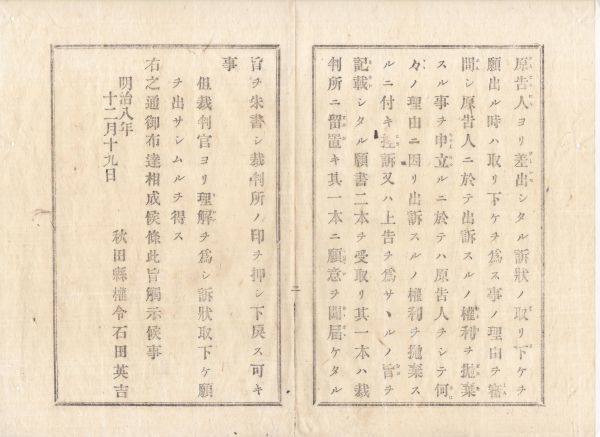 原告人ヨリ差出シタル訴狀ノ取リ下ケヲ
願出ル時ハ取リ下ケヲ爲ス事ノ理由ヲ審
問シ原告人ニ於テ出訴スルノ權利ヲ抛棄
スル事ヲ申立ルニ於テハ原告人ヲシテ何
々ノ理由ニ因リ出訴スルノ權利ヲ抛棄ス
ルニ付キ控訴又ハ上告ヲ爲サヽルノ旨ヲ
記載シタル願書二本ヲ受取リ其一本ハ裁
判所ニ留置キ其一本ニ願意ヲ聞届ケタル
二
旨ヲ朱書シ裁判所ノ印ヲ押シ下戾ス可キ
事
但裁判官ヨリ理解ヲ爲シ訴狀取下ケ願
ヲ出サシムルヲ得ス
右之通御布達相成候條此旨觸示候事
明治八年
十二月十九日
秋田縣權令石田英吉